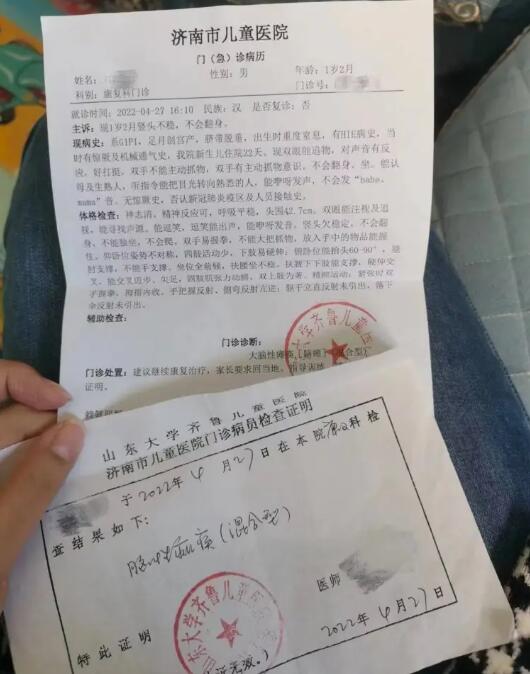 济南市儿童医院
门（急）诊病历
姓名： 性别：男 年龄：1岁2月
科别：康复科门诊 门诊号：
就诊时间：2022-04-27 16:10 民族：汉 是否复诊：否
主诉：现1岁2月竖头不稳，不会翻身。
现病史：系G1P1，足月剖宫产，脐带脱垂，出生时重度窒息，有HIE病史，当
时有惊厥及机械通气史，我院新生儿住院22天。现双眼能追物，对声音有反
应，好打挺，双手不能主动抓物，双手有主动抓物意识。不会翻身、坐。能认
母及生熟人，听指令能把目光转向熟悉的人，能咿呀发声，不会发“baba、
mama”音。无惊厥史，否认新冠肺炎疫区及人员接触史。
体格检查：神志清，精神反应可，呼吸平稳，头围42.7cm，双眼能注视及追
视，能寻找声源，能逗笑，逗笑能出声，能咿呀发音，竖头欠稳定，不会翻
身，不能独坐，不会爬，双手易握拳，不能大把抓物，放入手中的物品能握
住，仰卧位姿势不对称，四肢活动少，下肢易硬伸；俯卧位能抬头60-90°，腿
肘支撑，不能手支撑，坐位全前倾，扶腰坐不稳，扶腋下下肢能支撑，硬伸交
叉，能交叉迈步，尖足，四肢肌张力动摇，双上肢为著，精细活动：紧张时双
手握拳，拇指内收，手把握反射、侧弯反射 躯干立直反射未引出，落下
伞反射未引出。
辅助检查：
门诊诊断：
大脑性瘫痪
门诊处置：建议继续康复治疗，家长要求回当地
证明。
山东大学齐鲁儿童医院
济南市儿童医院门诊病员检查证明
于2022年4月27日在本院康复科检
查结果如下：
脑性瘫痪（混合型）
医师
特此证明
2022年4月27日
山东大学齐鲁儿童医